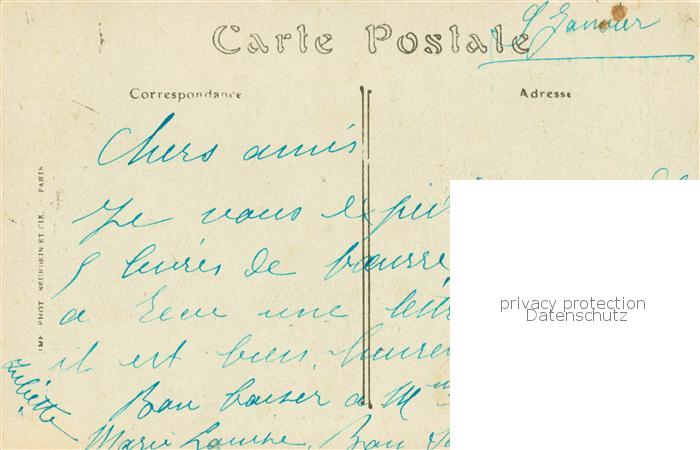 9 Janvier
Carte Postale
Correspondance
Adresse
Chers amis
Je vous
5 livres de beurre
a une
il est bien
Bon baiser à M
Marie Louise. Bon
Juliette
IMP. PHOT. NEURDEIN ET CIE. - PARIS
privacy protection
Datenschutz